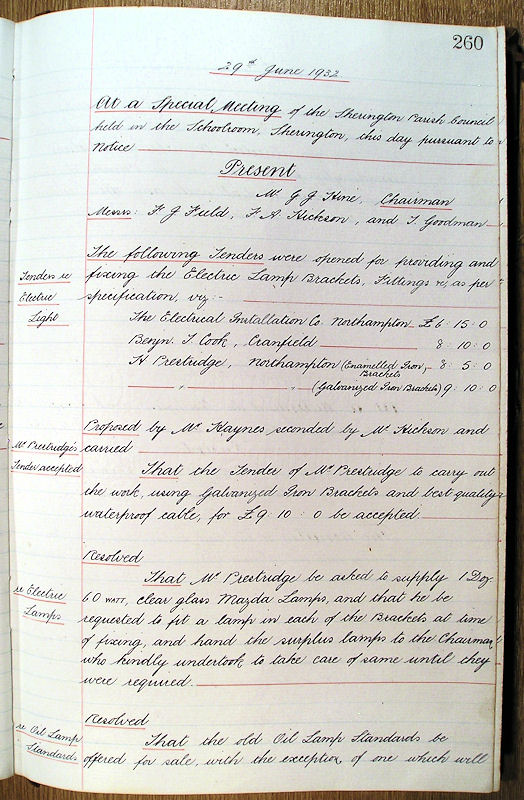 260
29th June 1932
At a Special Meeting of the Sherington Parish Council
held in the Schoolroom, Sherington, this day pursuant to
Notice
Present
Mr G J Hine, Chairman
Messrs: F J Field, F A Hickson, and T. Goodman
The following Tenders were opened for providing and
Tenders re
fixing the Electric Lamp Brackets, Fittings &c, as per
Electric
specification, viz:-
Light
The Electrical Installation Co. Northampton £6 : 15 : 0
Benjn. T. Cook, Cranfield 8 : 10 : 0
H Prestridge, Northampton (Enamelled Iron Brackets 8 : 5 : 0
" " (Galvanized Iron Brackets) 9 : 10 : 0
Proposed by Mr Haynes seconded by Mr Hickson and
Mr Prestridge's
carried
Tender accepted
That the Tender of Mr Prestridge to carry out
the work, using Galvanized Iron Brackets and best quality
waterproof cable, for £9 : 10 : 0 be accepted.
Resolved
That Mr Prestridge be asked to supply 1 Doz.
re Electric
60 WATT, clear glass Mazda Lamps, and that he be
Lamps
requested to fit a lamp in each of the Brackets at time
of fixing, and hand the surplus lamps to the Chairman,
who kindly undertook to take care of same until they
were required.
Resolved
re Oil Lamp
That the old Oil Lamp Standards be
Standards
offered for sale, with the exception of one which will